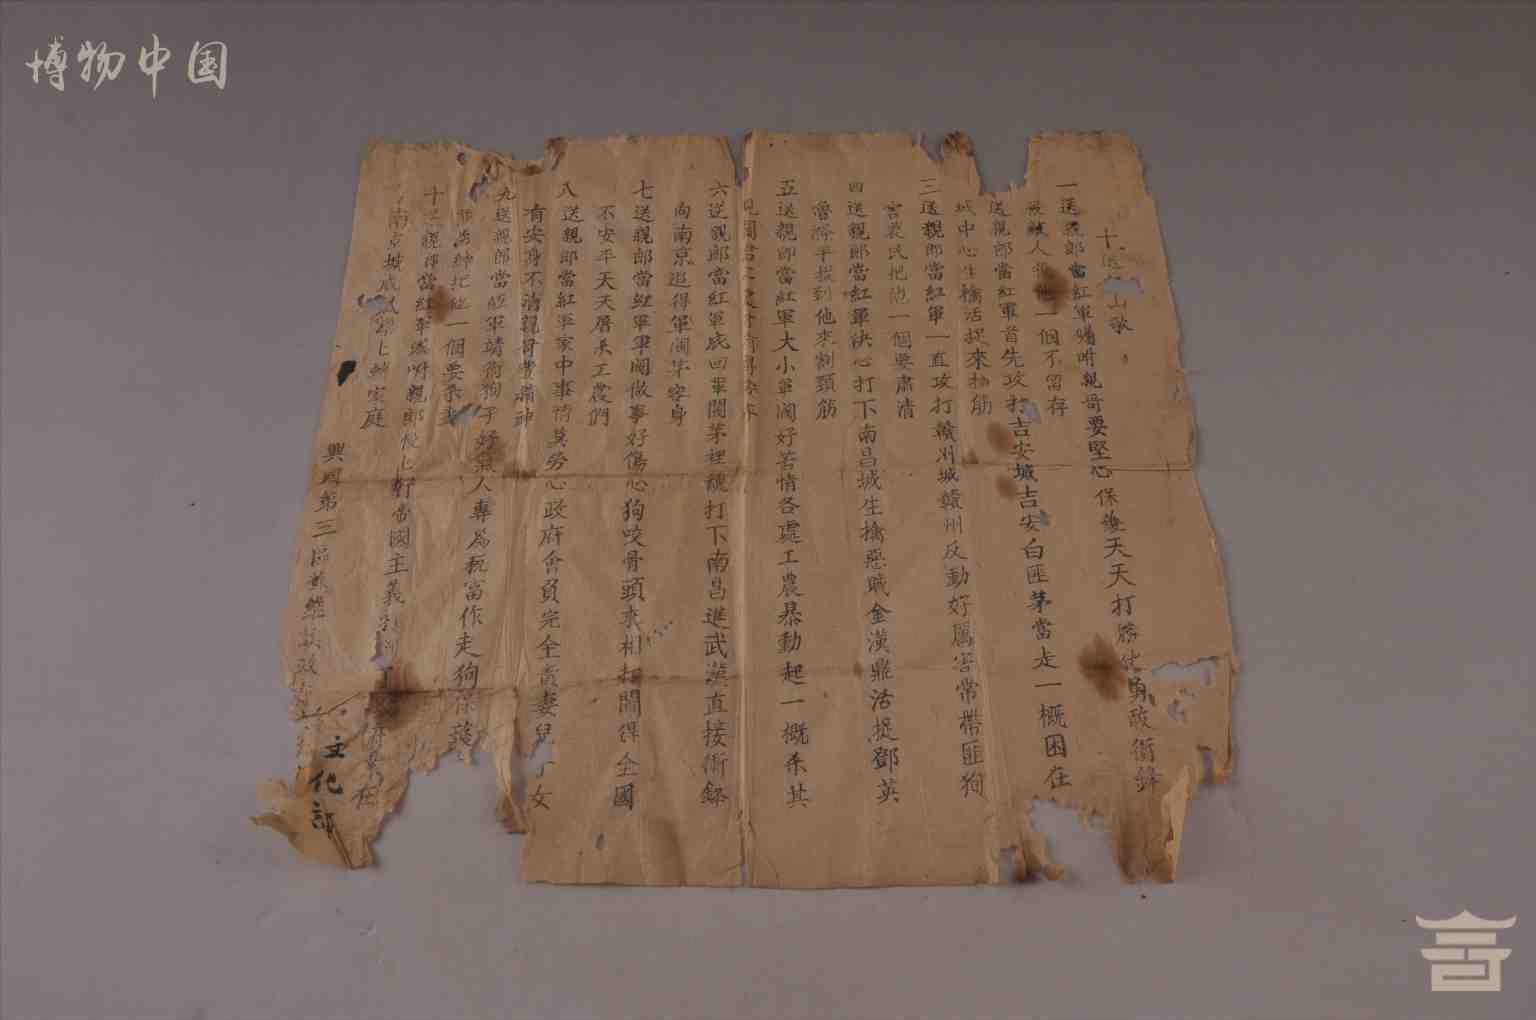 博物中国
十送 山歌
一送親郎當紅軍囑咐親哥要堅心保護天天打勝仗勇敢衝鋒
人 他一個不留存
送親郎當紅軍首先攻打吉安城吉安白匪茅當走一概困在
城中心生擒活捉來抽筋
三送親郎當紅軍一直攻打贛州城贛州反動好厲害常帶匪狗
害農民把他一個要肅清
四送親郎當紅軍決心打下南昌城生擒惡賊金漢鼎活捉鄧英
魯滌平捉到他來割頸筋
五送親郎當紅軍大小軍閥好苦情各處工農暴動起一概杀其
六送親郎當紅軍 四軍閥茅裡 打下南昌進武漢直接衝鋒
向南京逛得軍閥茅容身
七送親郎當紅軍軍閥做事好傷心狗咬骨頭來相打鬧得全國
不安平天天屠杀工農們
八送親郎當紅軍家中事情莫勞心政府會負完全責妻兒子女
有安身不消親哥費精神
九送親郎當紅軍靖衛狗子好無人專為 富作走狗保護
紳把他一個要杀
十送親郎當紅軍 咐親郎 帝國主義
南京城成 家庭
興國第三區 政
文化部